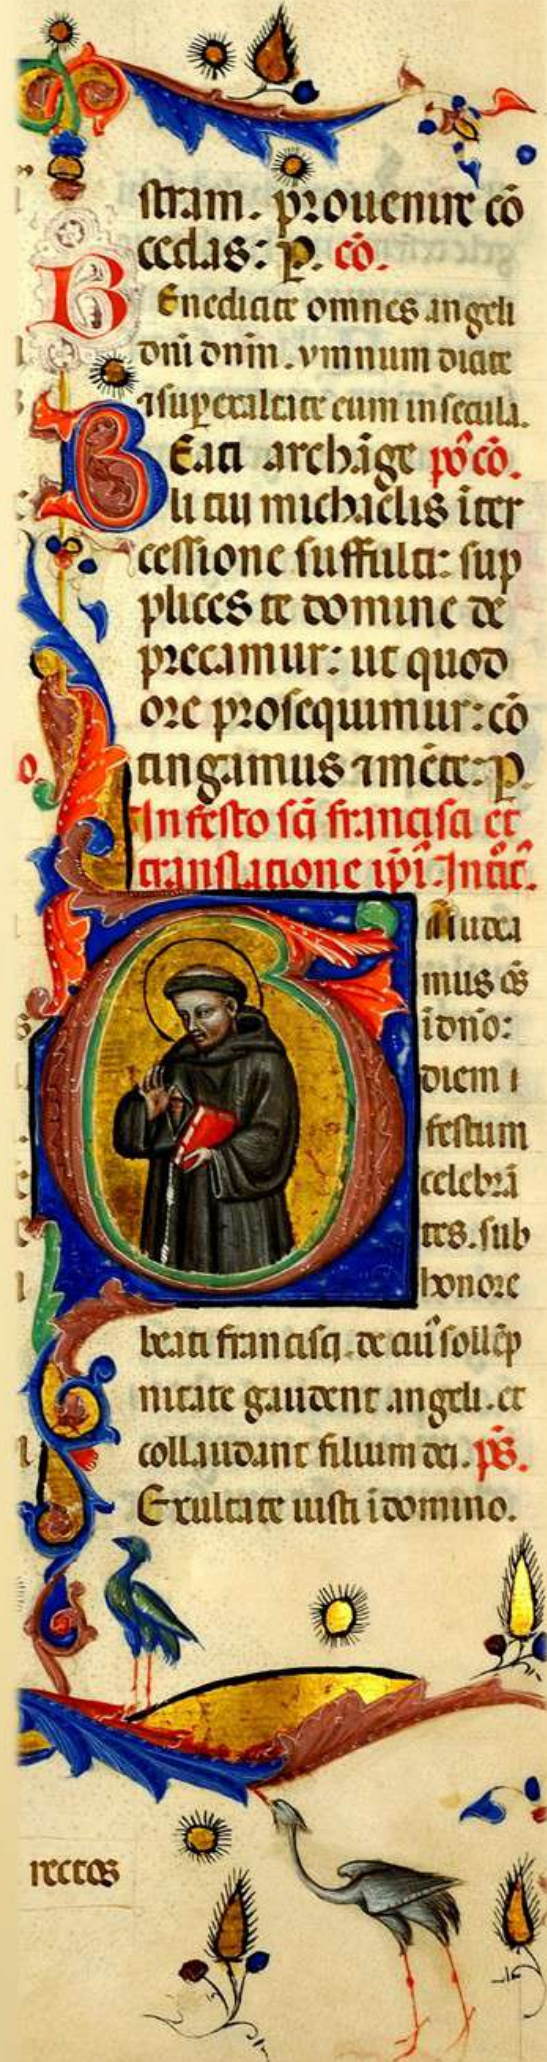 stram. prouenire cō
cedas: P. cō.
Benedicite omnes angeli
dn̄i dn̄m. ymnum dicite
⁊ suꝑexaltate eum in secula.
Beati archāge pꝰ cō.
li tui michaelis īter
cessione suffulti: sup
plices te domine de
precamur: ut quod
ore prosequimur: cō
tingamus ⁊ mēte: P.
In festo sc̄i francisci et
translatione ip̄i. Introit̄.
Gaudea
mus oēs
ī dn̄o:
diem
festum
celebrā
tes. sub
honore
beati francisci. de cuiꝰ sollēp
nitate gaudent angeli. et
collaudant filium dei. p̄s.
Exultate iusti ī domino.
rectos